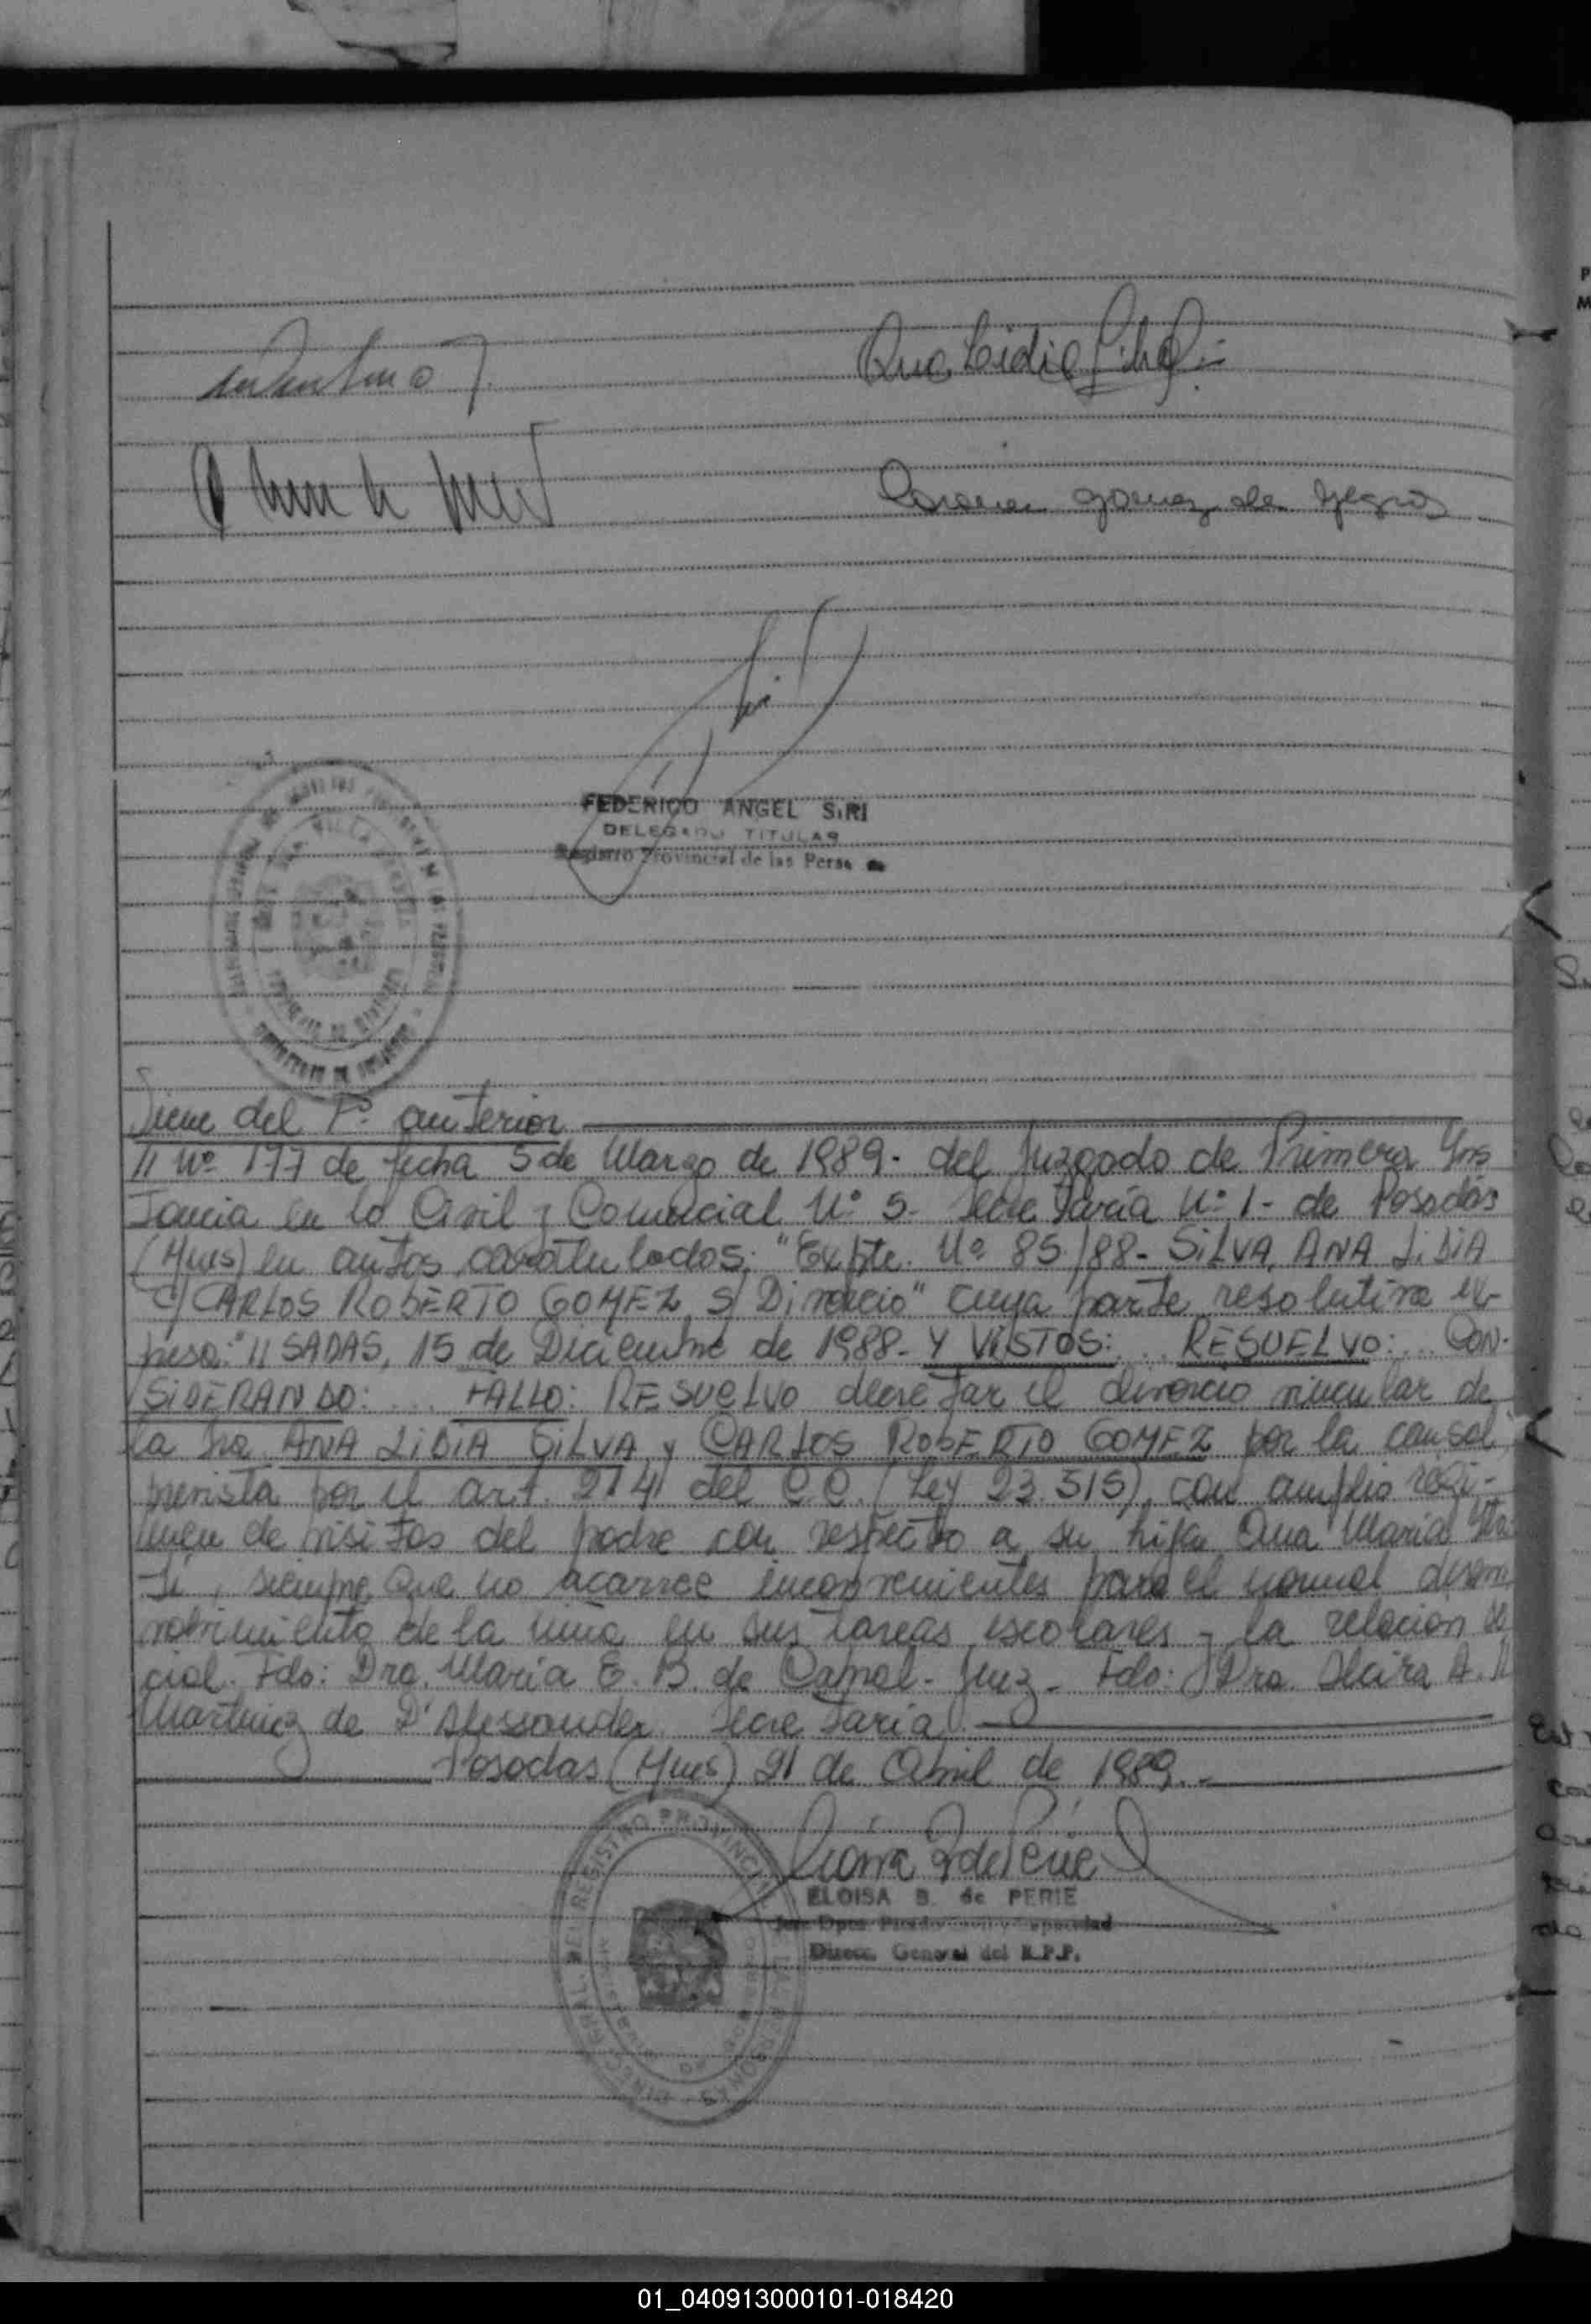 Ana Lidia Silva
Gomez de
FEDERICO ANGEL SIRI
DELEGADO TITULAR
Registro Provincial de las Perso
Viene del Fº anterior
// Nº 177 de fecha 5 de Marzo de 1989.- del Juzgado de Primera Ins
tancia en lo Civil y Comercial Nº 5- Secretaría Nº 1- de Posadas
(Mnes) en autos caratulados: "Expte. Nº 85/88- SILVA, ANA LIDIA
C/ CARLOS ROBERTO GOMEZ S/ Divorcio" cuya parte resolutiva ex-
presa: "// SADAS, 15 de Diciembre de 1988- Y VISTOS: ... RESUELVO: ... CON-
SIDERANDO: ... FALLO: RESUELVO decretar el divorcio vincular de
la Sra. ANA LIDIA SILVA y CARLOS ROBERTO GOMEZ por la causal
prevista por el art. 214 del C.C. (Ley 23.515), con amplio régi-
men de visitas del padre con respecto a su hija Ana María
siempre que no acarree inconvenientes para el normal desen
volvimiento de la niña en sus tareas escolares y la relación so
cial. Fdo: Dra. María E. B. de Juez- Fdo: Dra. Alcira A.
Martinez de D'Alessander. Secretaria
Posadas (Mnes) 21 de Abril de 1989.-
ELOISA B. de PERIE
Direcc. General del R.P.P.
DIRECC. GRAL. DEL REGISTRO PROVINCIAL DE LAS PERSONAS
01_040913000101-018420